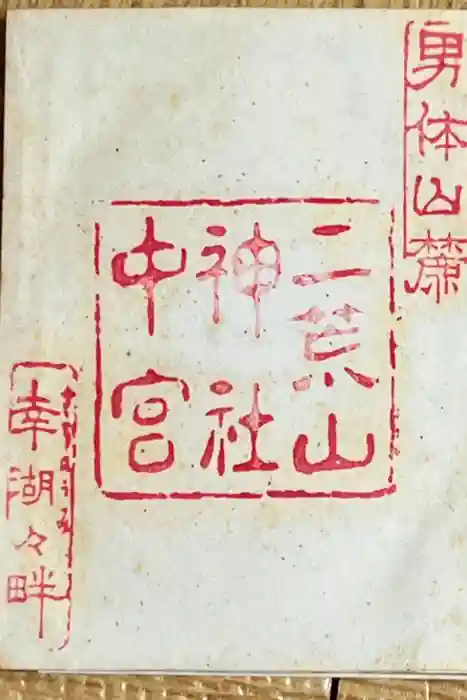 男体山麓
二荒山
神社
中宮
幸湖々畔